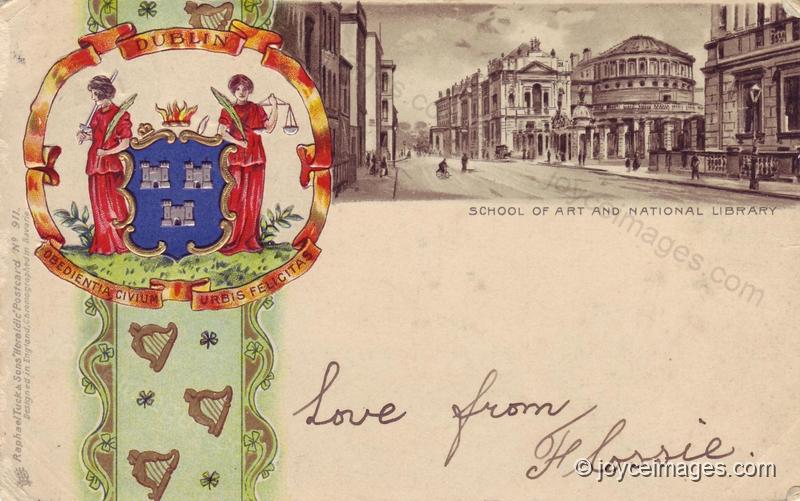 DUBLIN
OBEDIENTIA CIVIUM URBIS FELICITAS
SCHOOL OF ART AND NATIONAL LIBRARY
Raphael Tuck & Sons "Heraldic" Postcard Nº 911.
Designed in England, Chromographed in Bavaria
Love from
Flossie.
joyceimages.com
joyceimages.com
© joyceimages.com